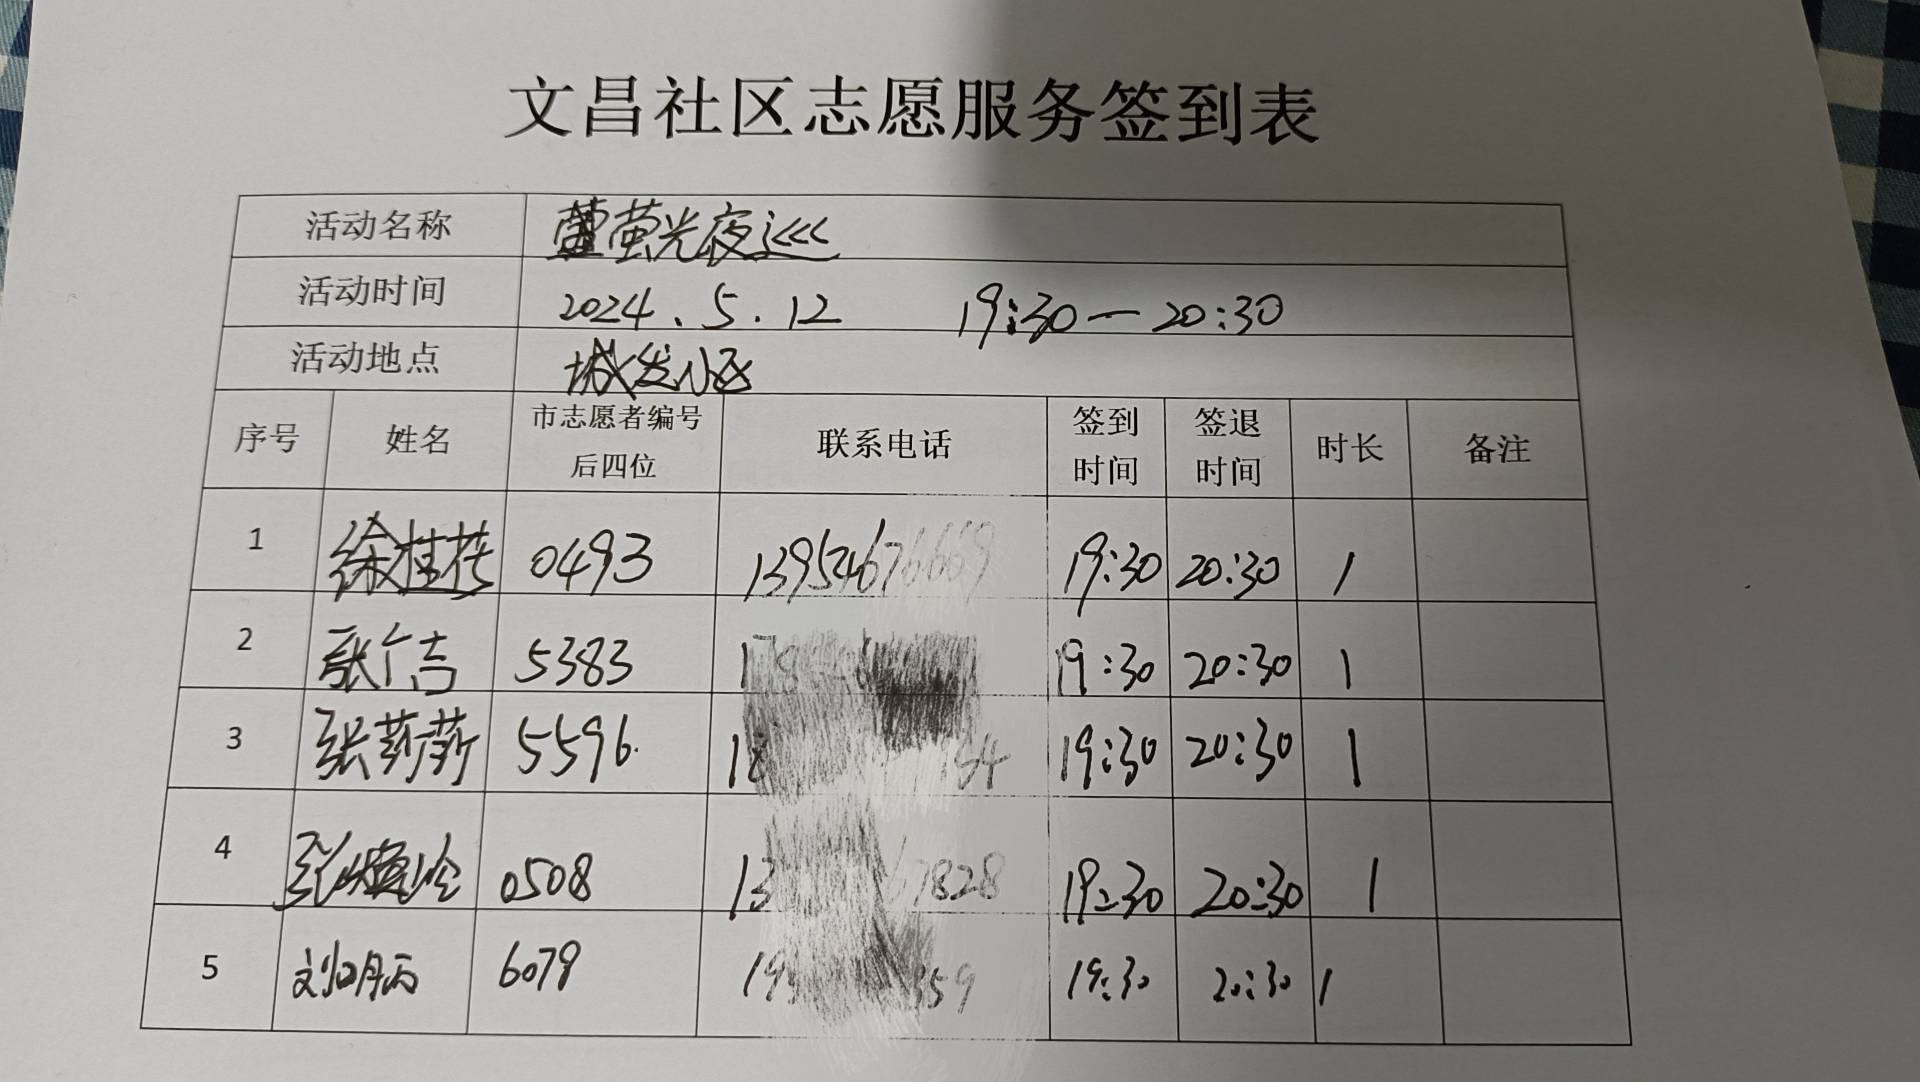 文昌社区志愿服务签到表
活动名称 萤光夜巡
活动时间 2024.5.12 19:30—20:30
活动地点 城发小区
序号 姓名 市志愿者编号后四位 联系电话 签到时间 签退时间 时长 备注
1 徐桂 0493 19:30 20:30 1
2 张广吉 5383 19:30 20:30 1
3 张莉莉 5596. 19:30 20:30 1
4 张 0508 19:30 20:30 1
5 刘明丙 6079 19:30 20:30 1